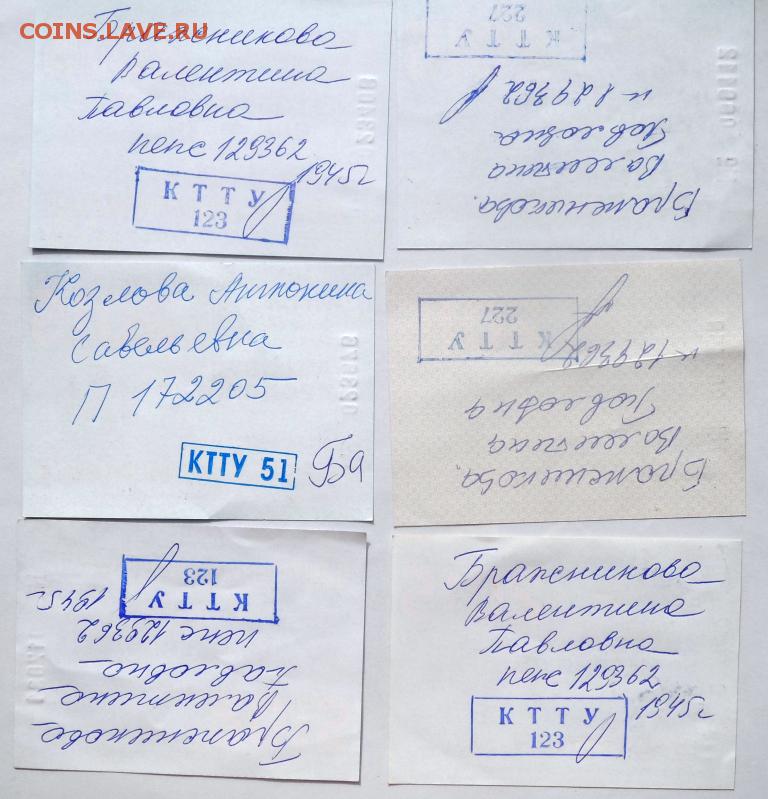 COINS.LAVE.RU
Бражникова
Валентина
Павловна
пенс 129362
1945г
К Т Т У
123
К Т Т У
227
п 129362
Павловна
Валентина
Бражникова.
Козлова Антонина
Савельевна
П 172205
КТТУ 51
023676
К Т Т У
227
п 129362
Павловна
Валентина
Бражникова.
К Т Т У
123
1945г
пенс 129362
Павловна
Валентина
Бражникова
Бражникова
Валентина
Павловна
пенс 129362
1945г
К Т Т У
123